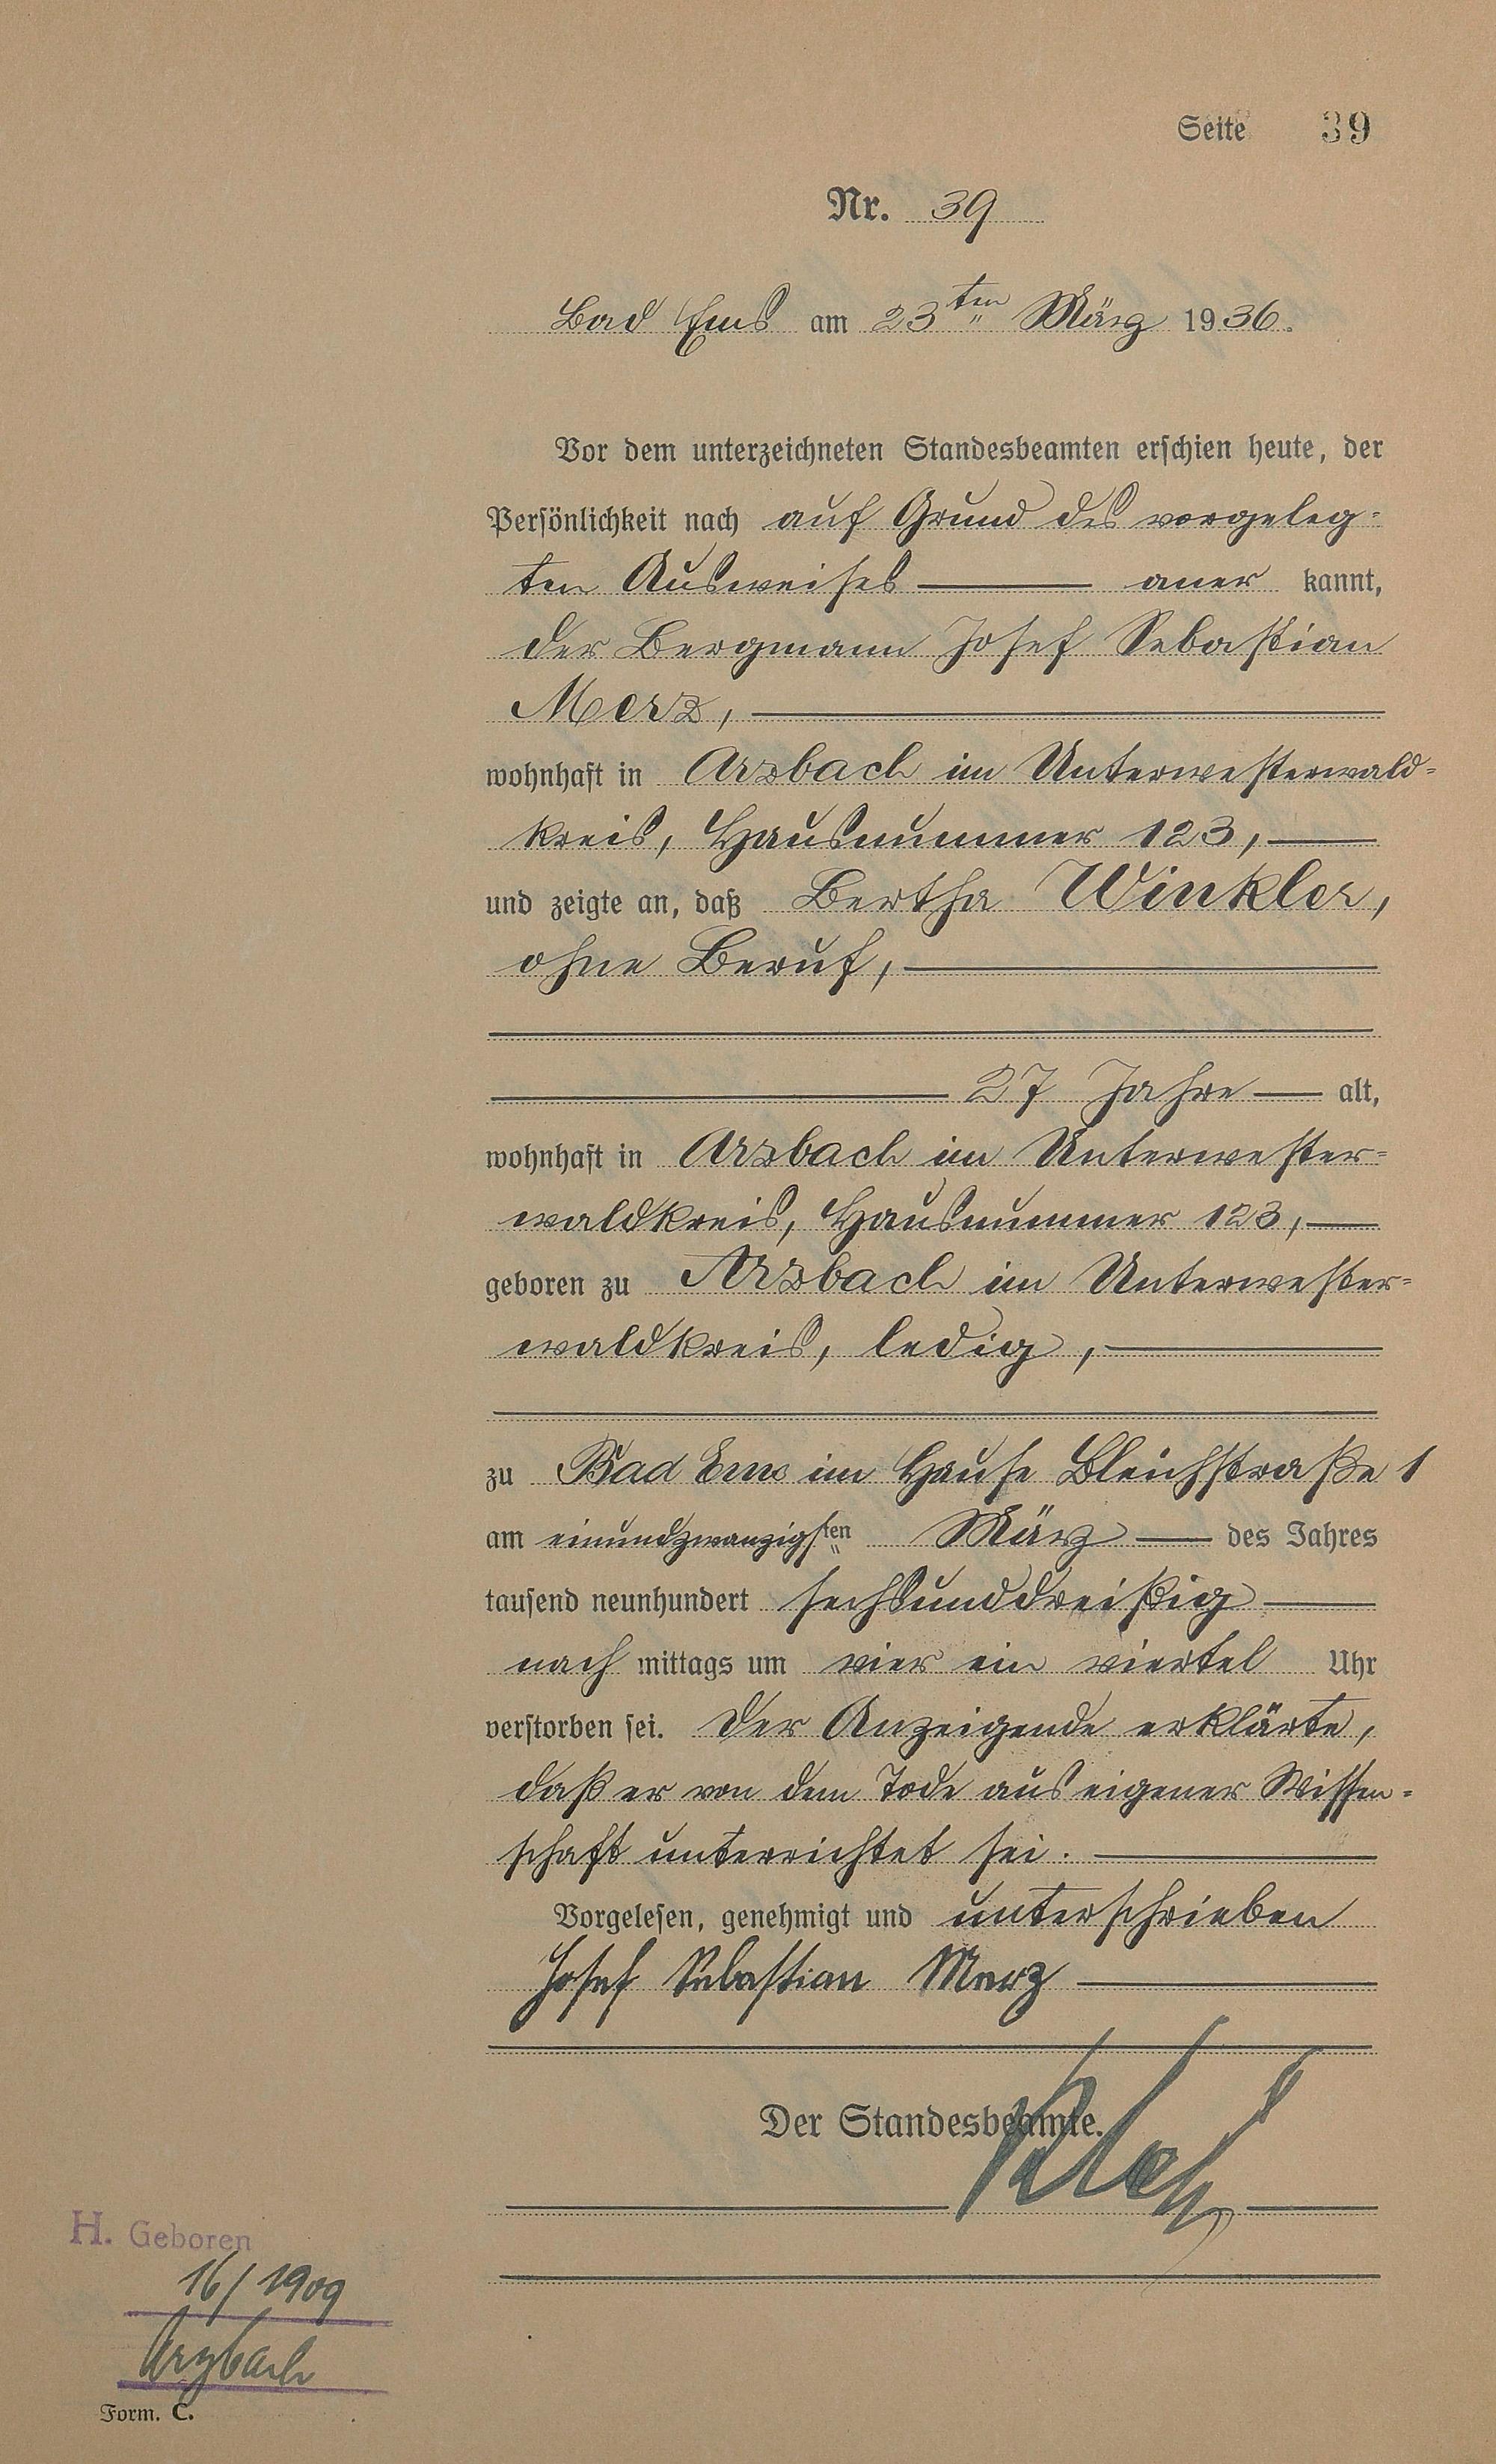 Seite 39
Nr. 39
Bad Ems am 23ten März 1936.
Vor dem unterzeichneten Standesbeamten erschien heute, der
Persönlichkeit nach auf Grund des vorgeleg=
ten Ausweises aner kannt,
der Bergmann Josef Sebastian
Merz,
wohnhaft in Arzbach im Unterwesterwald=
kreis, Hausnummer 123,
und zeigte an, daß Bertha Winkler,
ohne Beruf,
27 Jahre alt,
wohnhaft in Arzbach im Unterwester=
waldkreis, Hausnummer 123,
geboren zu Arzbach im Unterwester=
waldkreis, ledig,
zu Bad Ems im Hause Bleichstraße 1
am einundzwanzigsten März des Jahres
tausend neunhundert sechsunddreißig
nach mittags um vier ein viertel Uhr
verstorben sei. Der Anzeigende erklärte,
daß er von dem Tode aus eigener Wissen=
schaft unterrichtet sei.
Vorgelesen, genehmigt und unterschrieben
Josef Sebastian Merz
Der Standesbeamte.
H. Geboren
16/1909
Arzbach
Form. C.